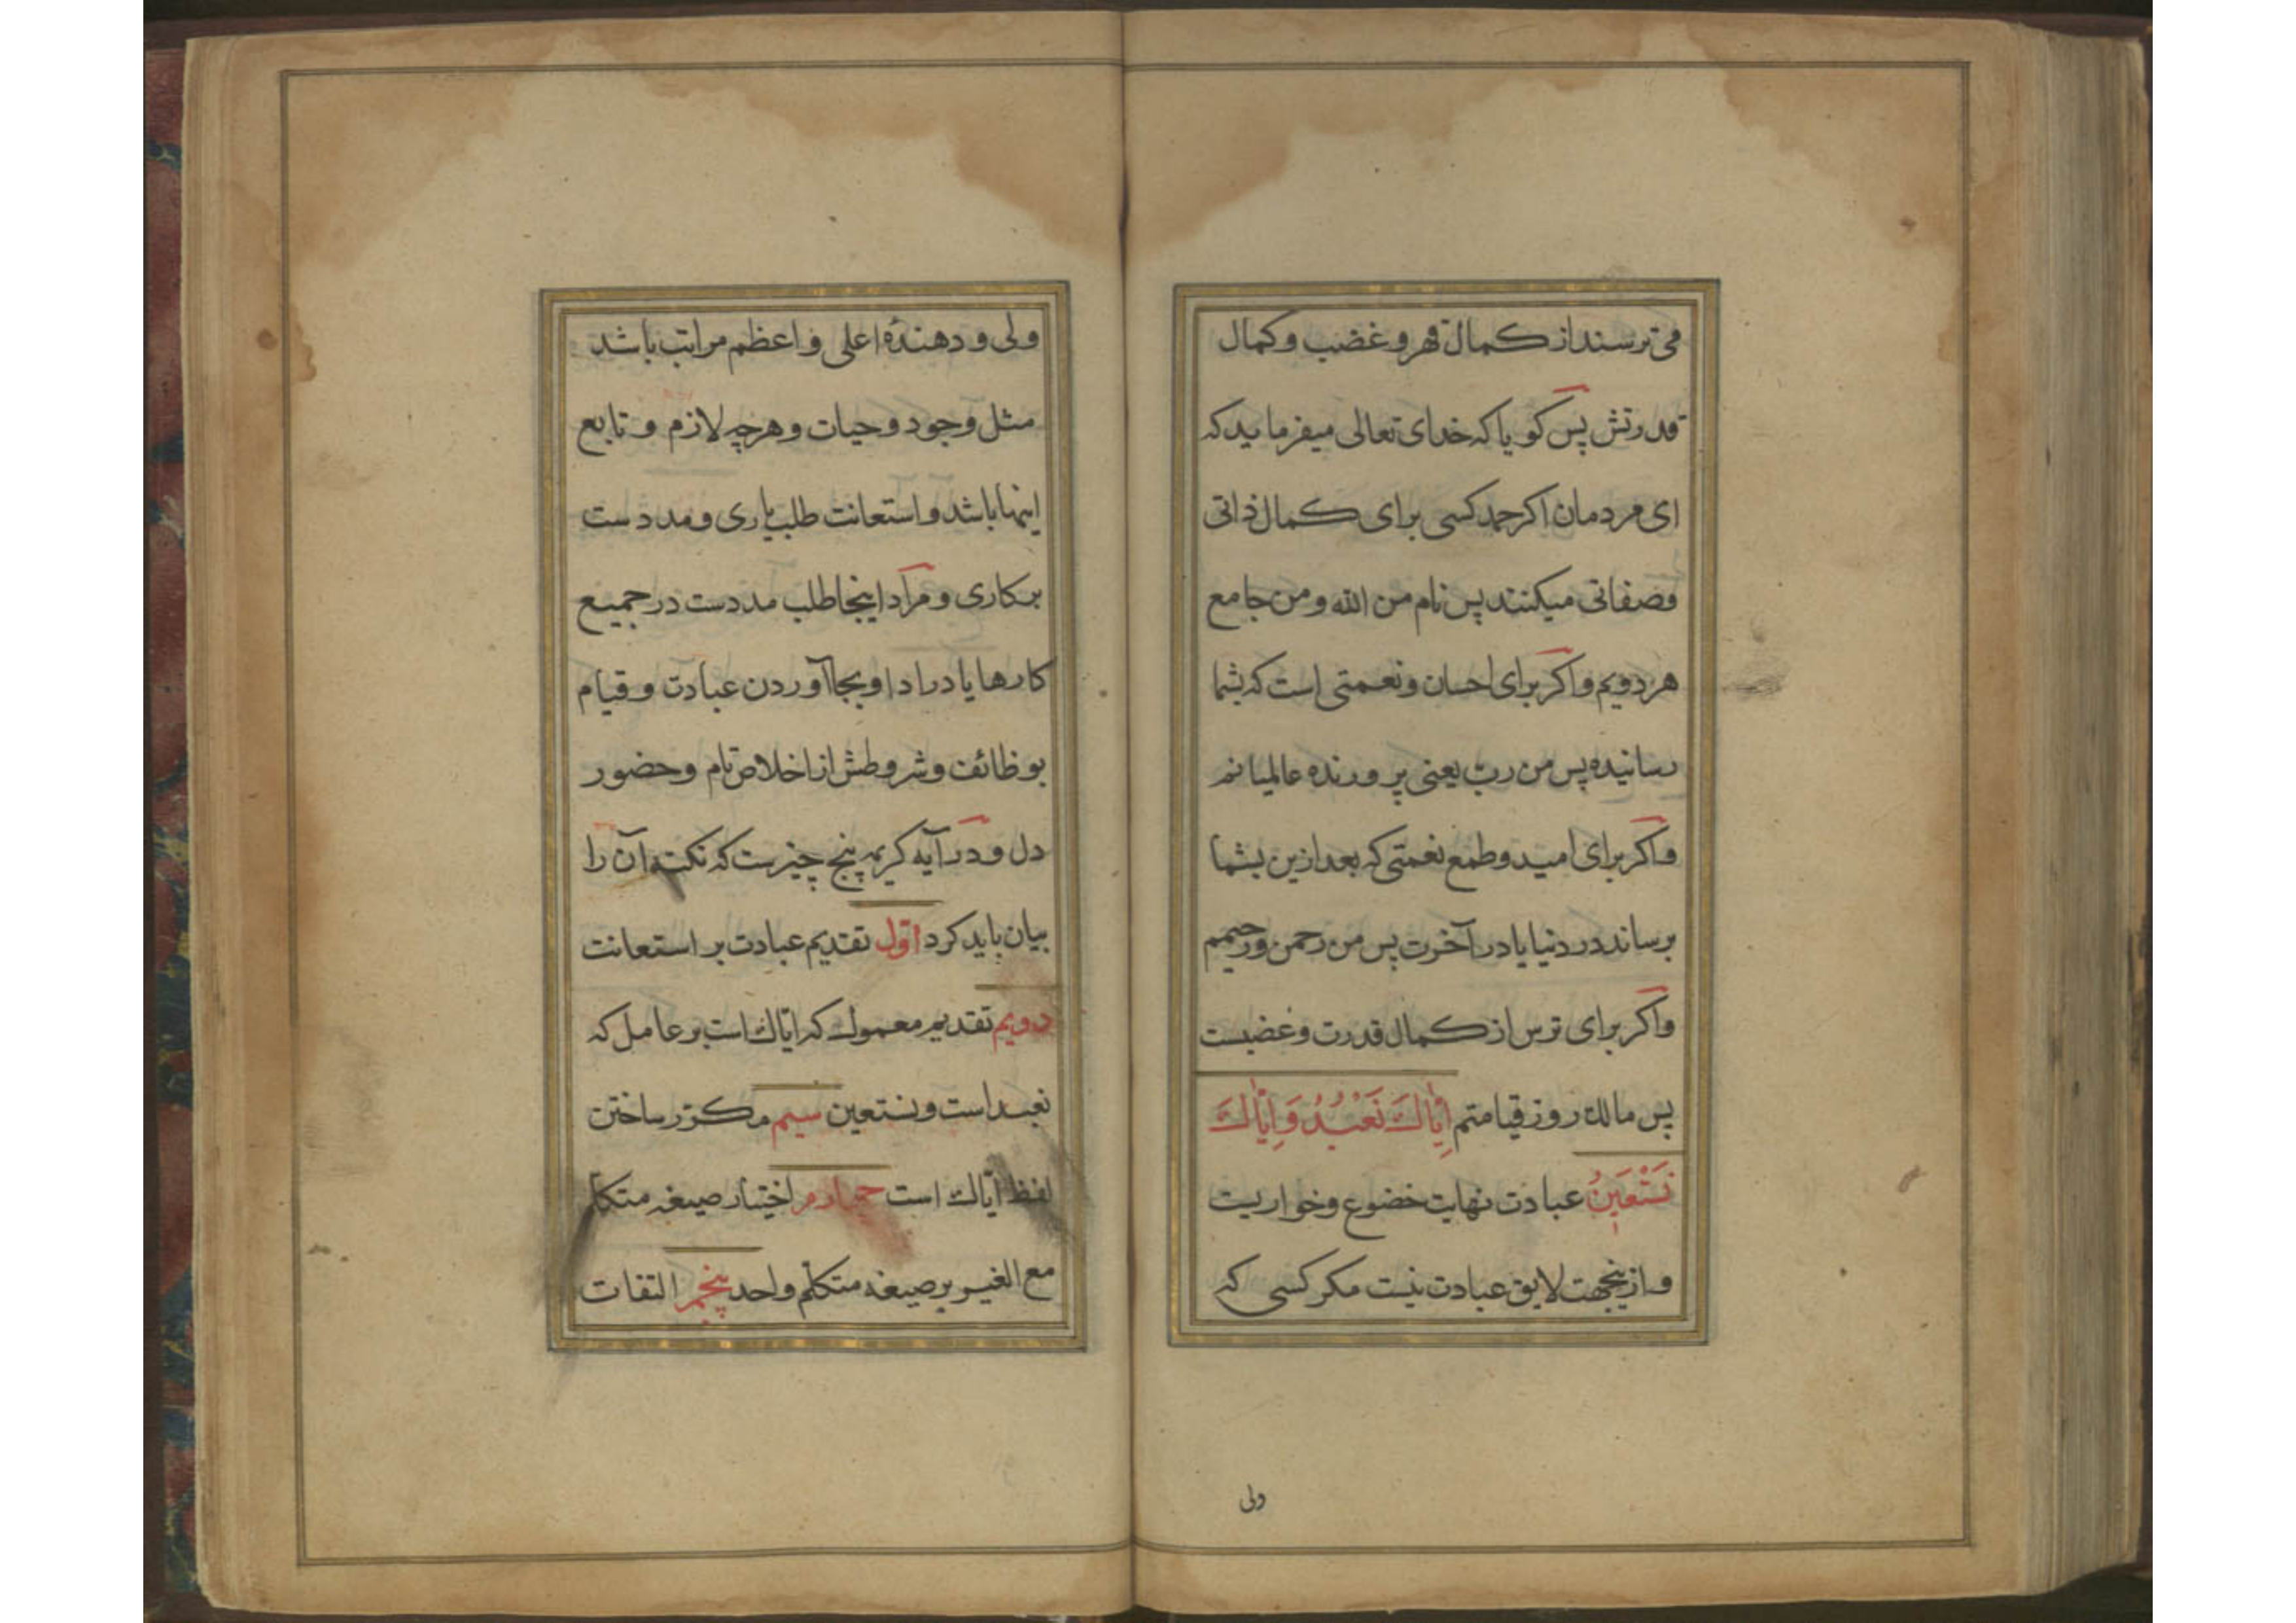 می ترسند از کمال قهر و غضب و کمال
قدرتش پس کویا که خدای تعالی میفرماید که
ای مردمان اکر حمد کسی برای کمال ذاتی
وصفاتی میکنند پس نام من الله و من جامع
هر دویم و اکر برای احسان و نعمتی است که بشما
رسانیده پس من ربّ یعنی پرورنده عالمیانم
و اکر برای امید و طمع نعمتی که بعد ازین بشما
برساند در دنیا یا در آخرت پس من رحمن و رحیمم
و اکر برای ترس از کمال قدرت و غضبست
پس مالك روز قیامتم اِیّاكَ نَعْبُدُ وَ اِیّاكَ
نَسْتَعینُ عبادت نهایت خضوع و خواریست
و ازینجهت لایق عبادت نیست مکر کسی که
ولی
ولی و دهندهٔ اعلی و اعظم مراتب باشد
مثل وجود و حیات و هرچه لازم و تابع
اینها باشد و استعانت طلب یاری و مددست
بر کاری و مراد اینجا طلب مددست در جمیع
کارها یا در ادا و بجا آوردن عبادت و قیام
بوظائف و شروطش از اخلاص تام و حضور
دل و در آیه کریمه پنج چیزست که نکته آن را
بیان باید کرد اوّل تقدیم عبادت بر استعانت
دویم تقدیم معمول که ایّاك است بر عامل که
نعبد است و نستعین سیم مکرّر ساختن
لفظ ایّاك است چهارم اختیار صیغه متکلم
مع الغیر بر صیغه متکلّم واحد پنجم التفات